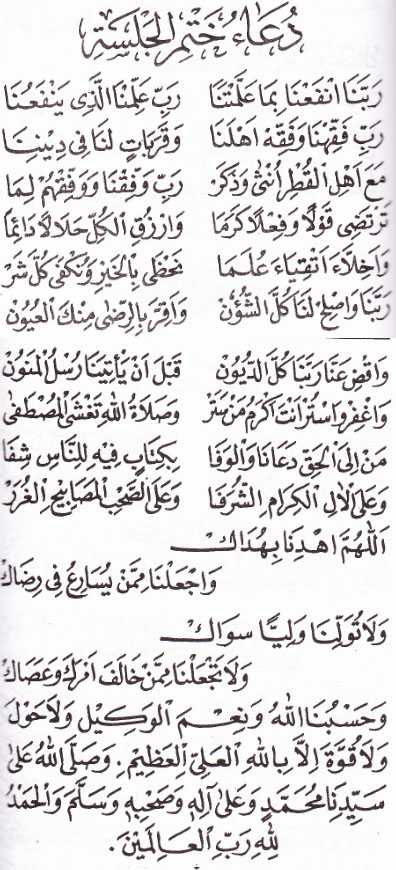 دُعَاءُ خَتْمِ الْجَلْسَةِ
رَبَّنَا انْفَعْنَا بِمَا عَلَّمْتَنَا رَبِّ عَلِّمْنَا الَّذِي يَنْفَعُنَا
رَبِّ فَقِّهْنَا وَفَقِّهْ اَهْلَنَا وَقَرَبَاتٍ لَنَا فِي دِيْنِنَا
مَعَ اَهْلِ الْقُطْرِ اُنْثَى وَذَكَرْ رَبِّ وَفِّقْنَا وَوَفِّقْهُمْ لِمَا
تَرْتَضِى قَوْلًا وَفِعْلًا كَرَمَا وَارْزُقِ الْكُلَّ حَلَالًا دَائِمًا
وَاَخِلَّاءَ اَتْقِيَاءَ عُلَمَا نَحْظَى بِالْخَيْرِ وَنُكْفَى كُلَّ شَرْ
رَبَّنَا وَاصْلِحْ لَنَا كُلَّ الشُّؤُنْ وَاَقِرَّ بِالرِّضَى مِنْكَ الْعُيُوْنْ
وَاقْضِ عَنَّا رَبَّنَا كُلَّ الدُّيُوْنْ قَبْلَ اَنْ يَأْتِيَنَا رُسُلُ الْمَنُوْنْ
وَاغْفِرْ وَاسْتُرْ اَنْتَ اَكْرَمُ مَنْ سَتَرْ وَصَلَاةُ اللهِ تَغْشَى الْمُصْطَفَى
مَنْ اِلَى الْحَقِّ دَعَانَا وَالْوَفَا بِكِتَابٍ فِيْهِ لِلنَّاسِ شِفَا
وَعَلَى الْاٰلِ الْكِرَامِ الشُّرَفَا وَعَلَى الصَّحْبِ الْمَصَابِيْحِ الْغُرَرْ
اَللّٰهُمَّ اهْدِنَا بِهُدَاكَ
وَاجْعَلْنَا مِمَّنْ يُسَارِعُ فِى رِضَاكَ
وَلَا تُوَلِّنَا وَلِيًّا سِوَاكَ
وَلَا تَجْعَلْنَا مِمَّنْ خَالَفَ اَمْرَكَ وَعَصَاكَ
وَحَسْبُنَا اللهُ وَنِعْمَ الْوَكِيْلُ وَلَا حَوْلَ
وَلَا قُوَّةَ اِلَّا بِاللهِ الْعَلِيِّ الْعَظِيْمِ. وَصَلَّى اللهُ عَلَى
سَيِّدِنَا مُحَمَّدٍ وَعَلَى اٰلِهِ وَصَحْبِهِ وَسَلَّمَ وَالْحَمْدُ
لِلّٰهِ رَبِّ الْعَالَمِيْنَ.